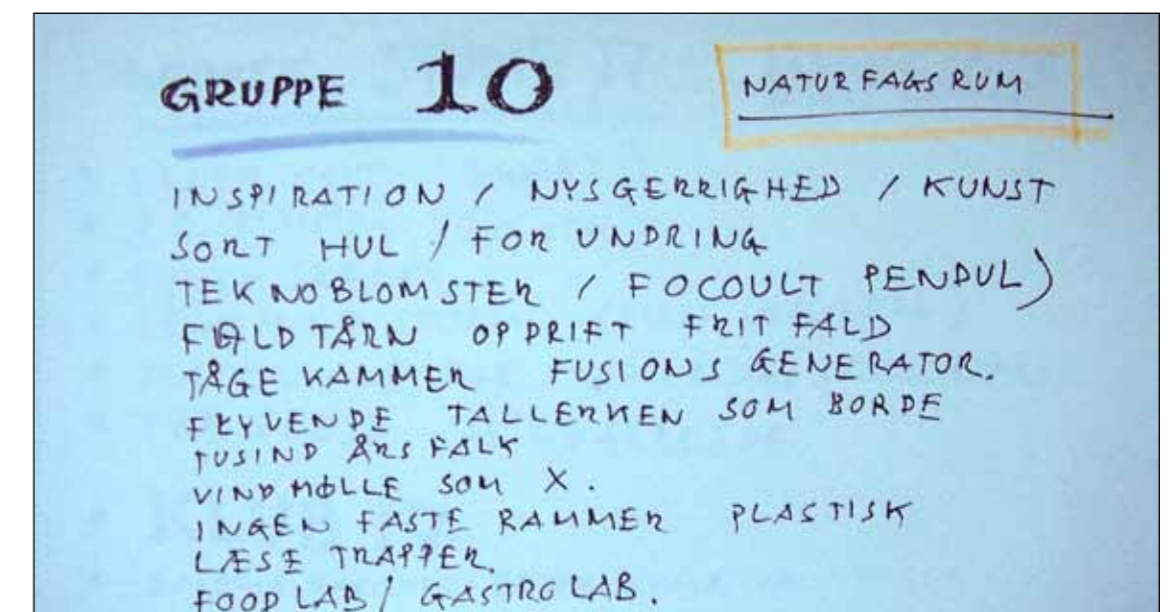 GRUPPE 10
NATURFAGSRUM
INSPIRATION / NYSGERRIGHED / KUNST
SORT HUL / FORUNDRING
TEKNOBLOMSTER / FOCOULT PENDUL)
FALDTÅRN OPDRIFT FRIT FALD
TÅGEKAMMER FUSIONSGENERATOR.
FLYVENDE TALLERKEN SOM BORDE
TUSINDÅRSFALK
VINDMØLLE SOM X.
INGEN FASTE RAMMER PLASTISK
LÆSETRAPPER.
FOODLAB / GASTROLAB.